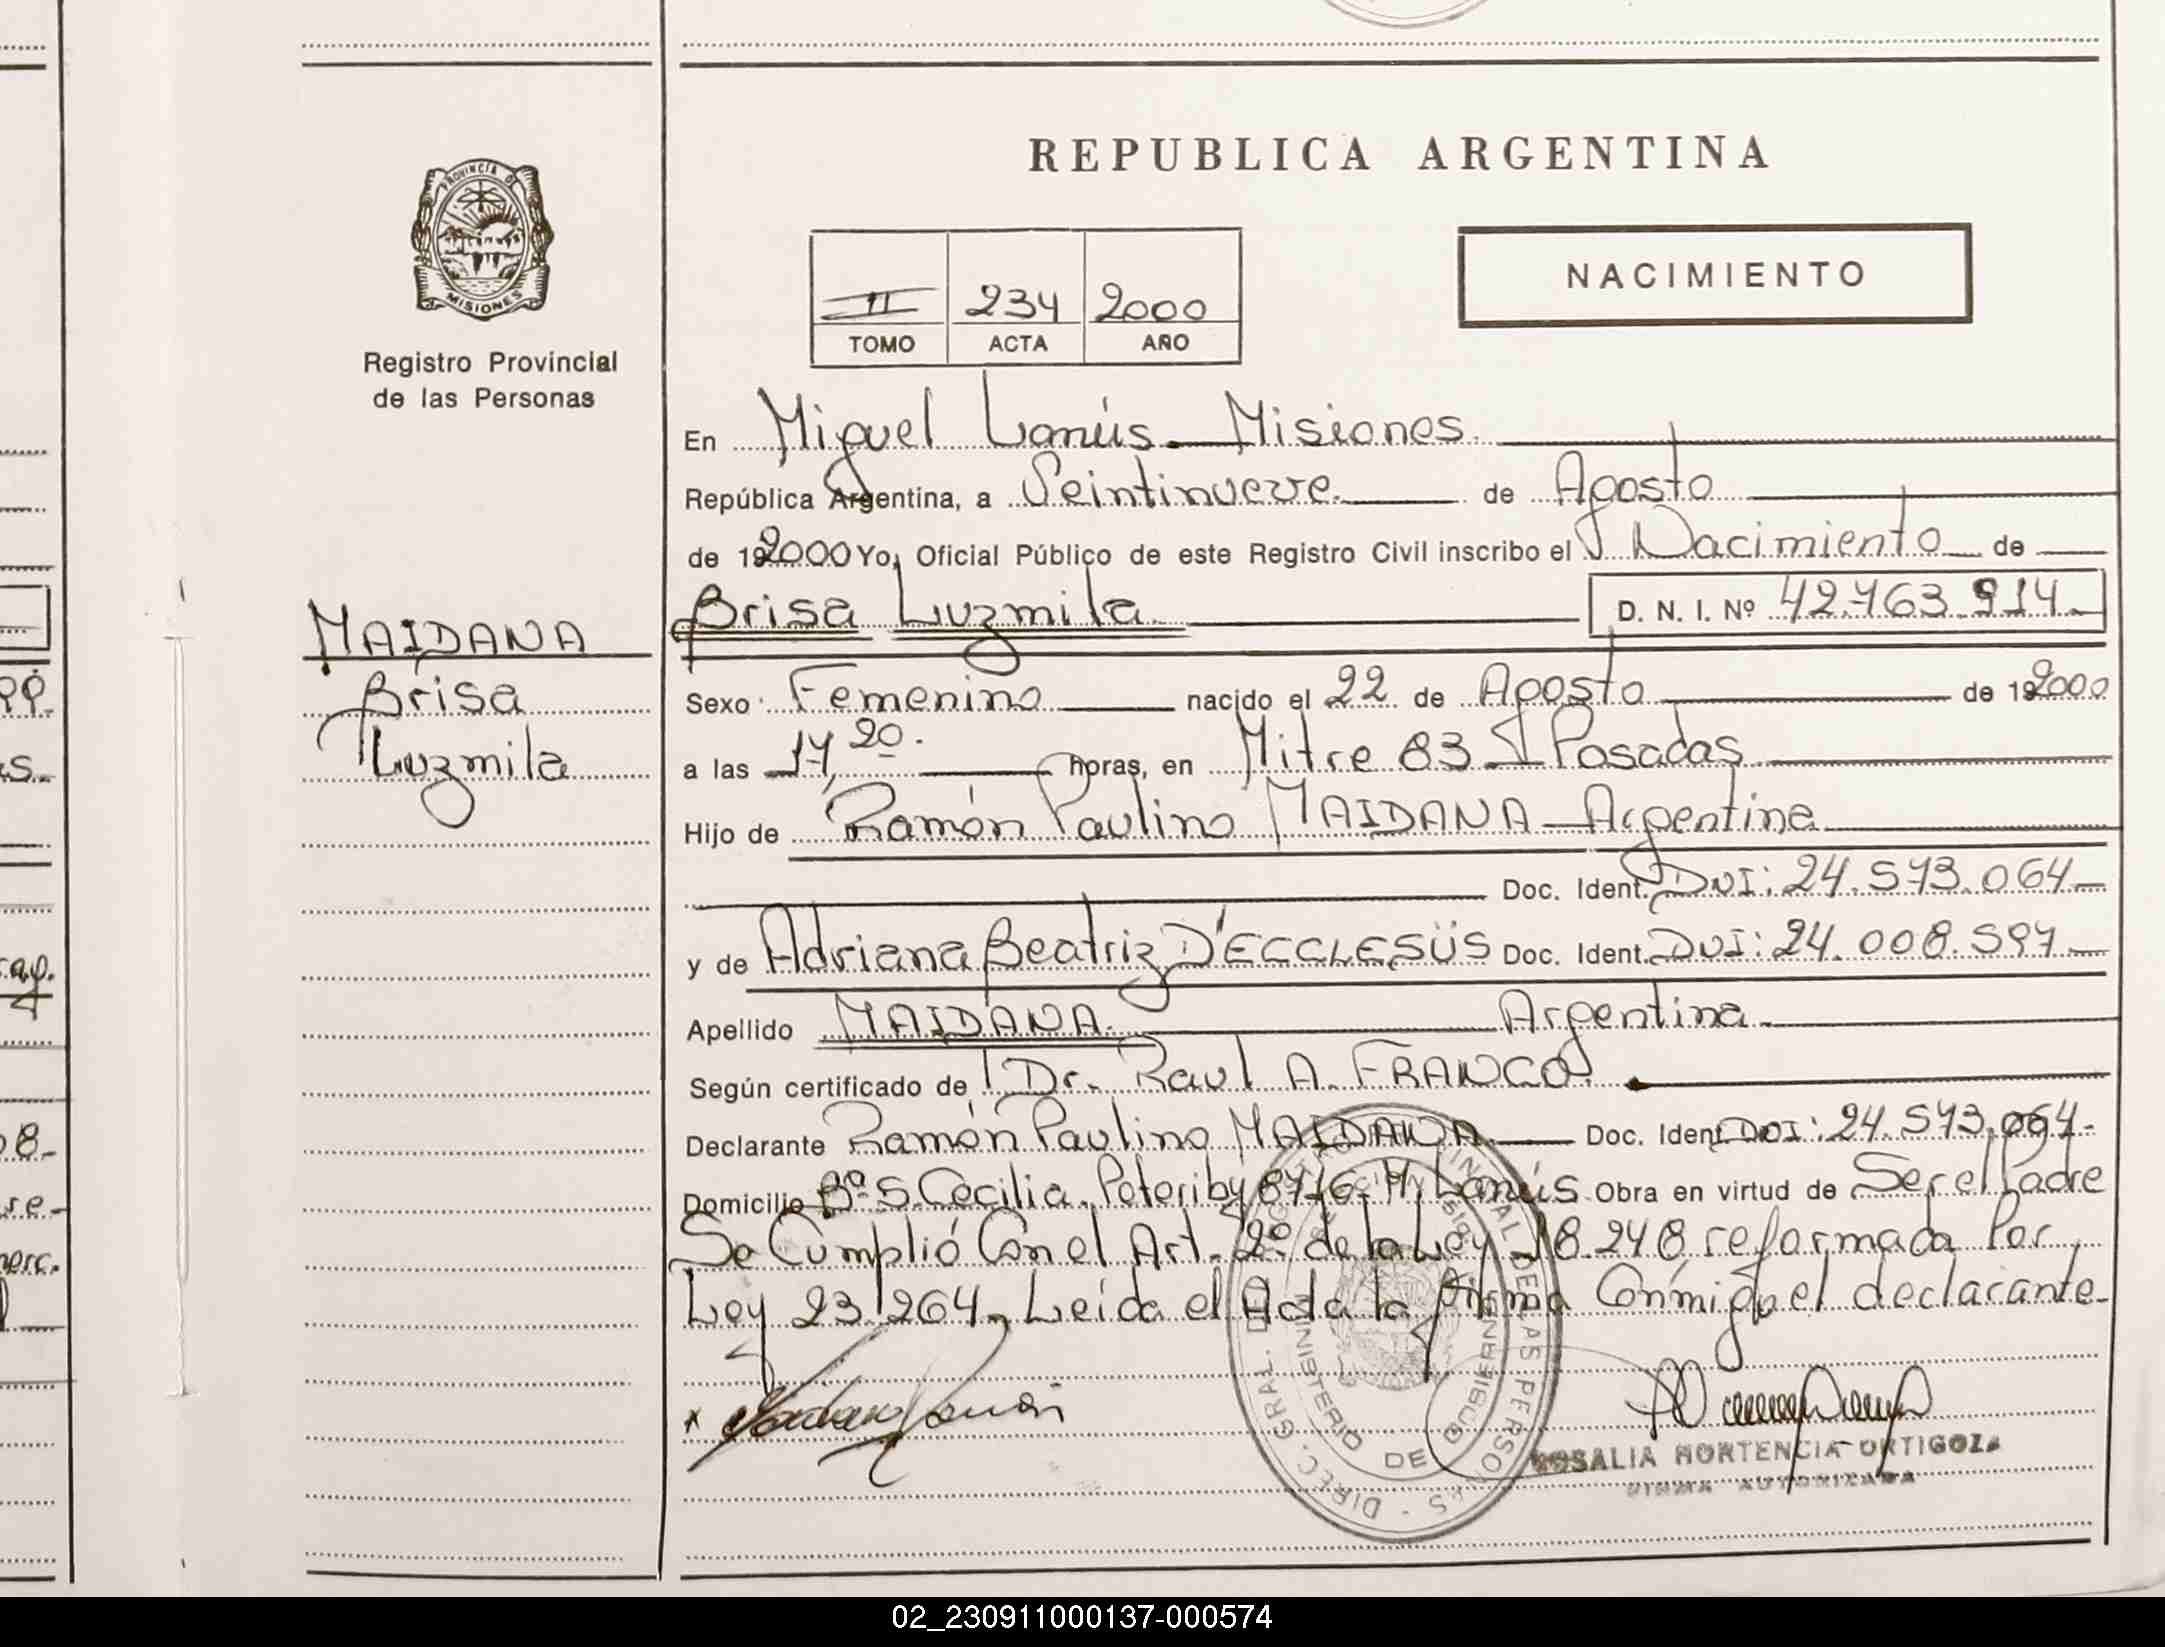 REPUBLICA ARGENTINA
PROVINCIA DE
MISIONES
Registro Provincial
de las Personas
II 234 2000
TOMO ACTA AÑO
NACIMIENTO
En Miguel Lanús - Misiones
República Argentina, a Veintinueve de Agosto
de 192000 Yo, Oficial Público de este Registro Civil inscribo el Nacimiento de
MAIDANA
Brisa Luzmila D. N. I. Nº 42.763.914
Brisa
Luzmila
Sexo Femenino nacido el 22 de Agosto de 192000
a las 17,20. horas, en Mitre 83 Posadas
Hijo de Ramón Paulino MAIDANA - Argentina
Doc. Ident. DNI: 24.573.064
y de Adriana Beatriz D'ECCLESÜS Doc. Ident. DNI: 24.008.597
Apellido MAIDANA Argentina
Según certificado de Dr. Raul A. FRANCO.
Declarante Ramón Paulino MAIDANA Doc. Ident. DNI: 24.573.064.
Domicilio Bº S. Cecilia. Peteriby 8776 M. Lanús Obra en virtud de Ser el Padre
Se Cumplió Con el Art. 2º de la Ley 18.248 reformada Por
Ley 23.264. Leída el Acta la firma Conmigo el declarante
DIREC. GRAL. DEL PROVINCIAL DE LAS PERSONAS
MINISTERIO DE GOBIERNO
ROSALIA HORTENCIA ORTIGOZA
FIRMA AUTORIZADA
02_230911000137-000574